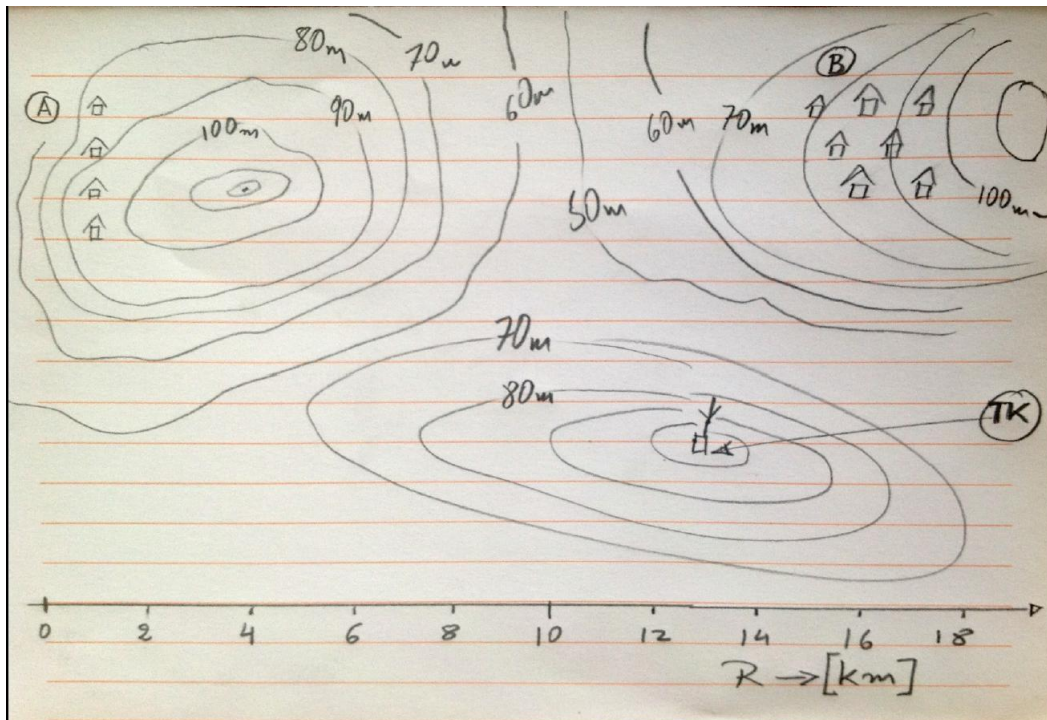 80m
70m
60m
60m
70m
B
A
100m
90m
50m
100m
70m
80m
TK
0 2 4 6 8 10 12 14 16 18
R → [km]